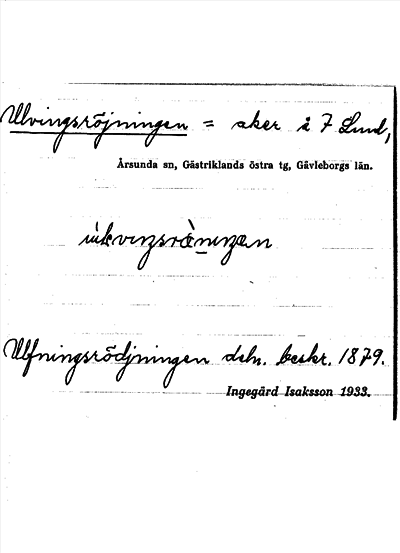 Ulvingsröjningen = åker å 7 Lund,
Årsunda sn, Gästriklands östra tg, Gävleborgs län.
Ulfningsrödjningen dsbr. beskr. 1879.
Ingegärd Isaksson 1933.